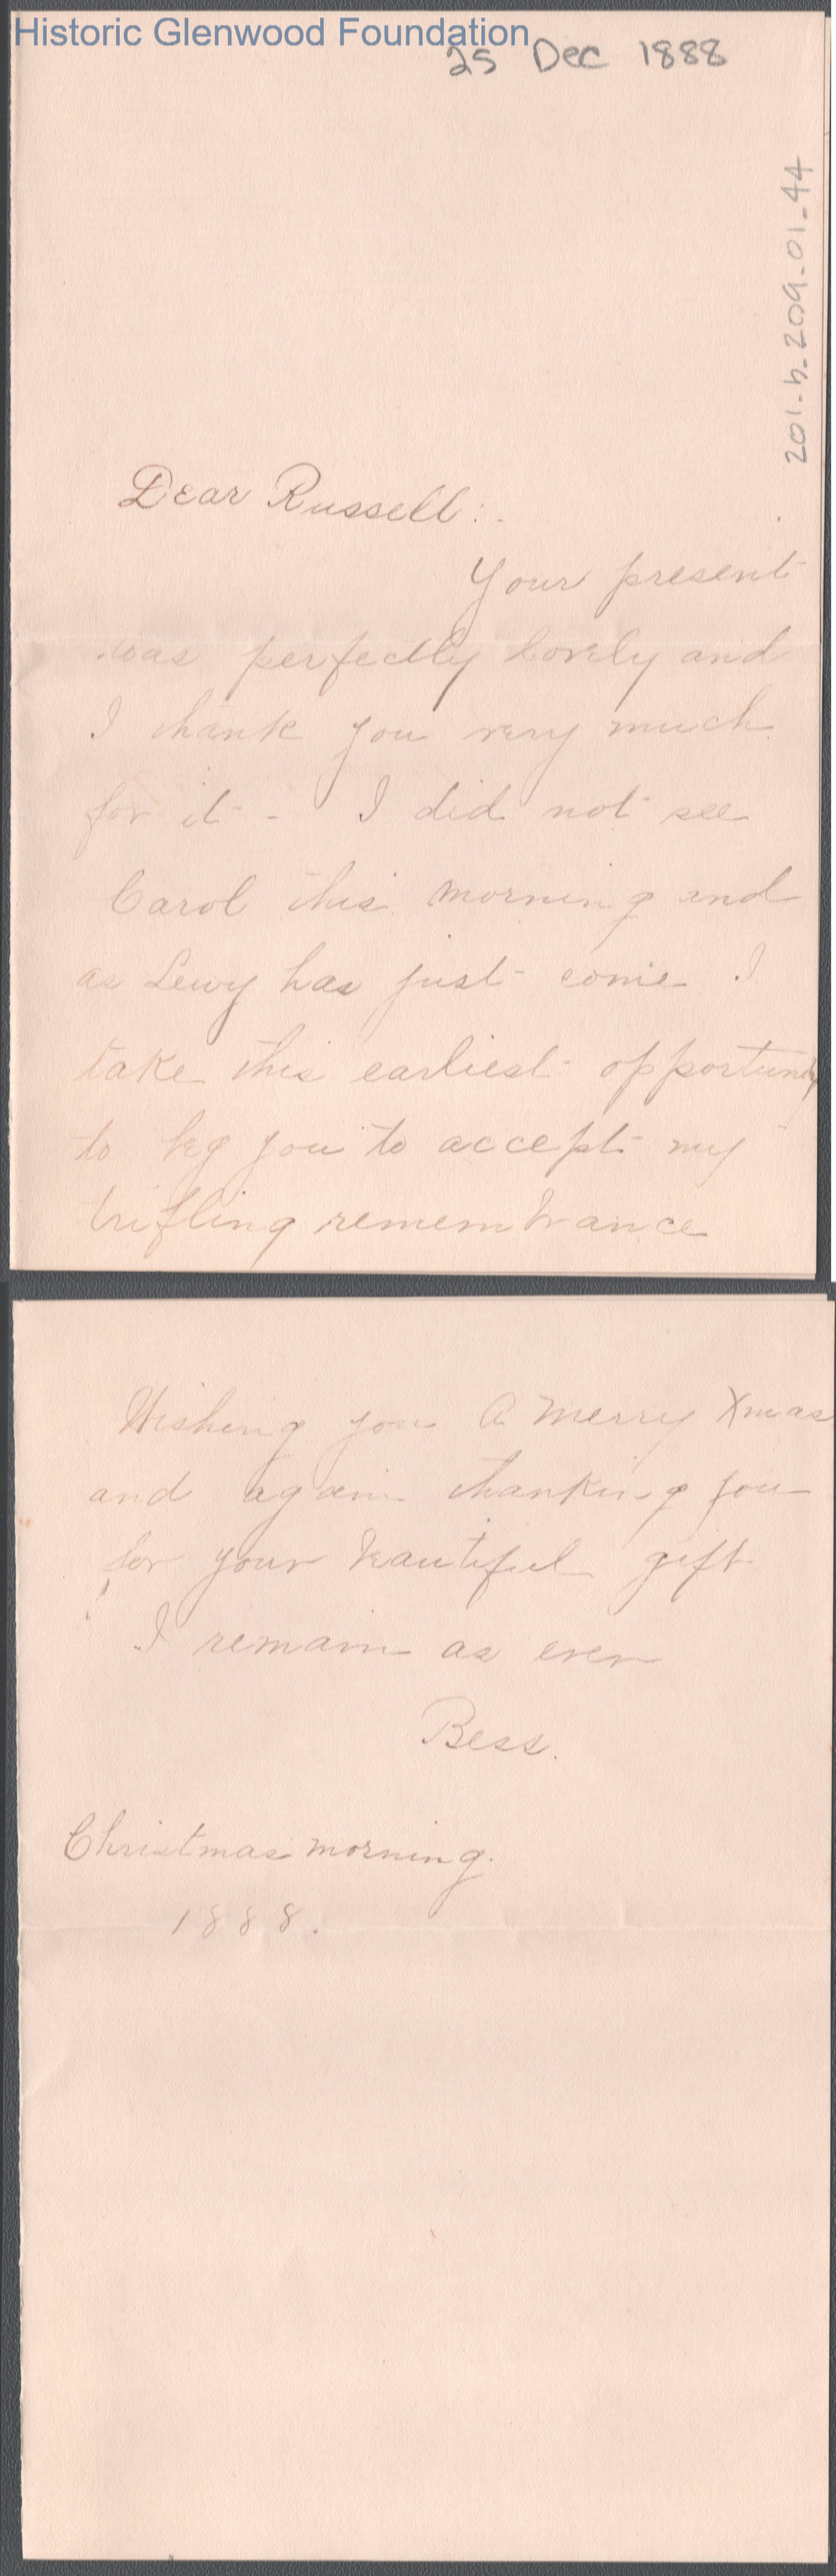 Historic Glenwood Foundation
25 Dec 1888
201-b-209-01-44
Dear Russell:-
Your present
was perfectly lovely and
I thank you very much
for it - I did not see
Carol this morning and
as Lewy has just come I
take this earliest opportunity
to beg you to accept my
trifling remembrance
Wishing you A Merry Xmas
and again thanking you
for your beautiful gift
I remain as ever
Bess.
Christmas morning.
1888.